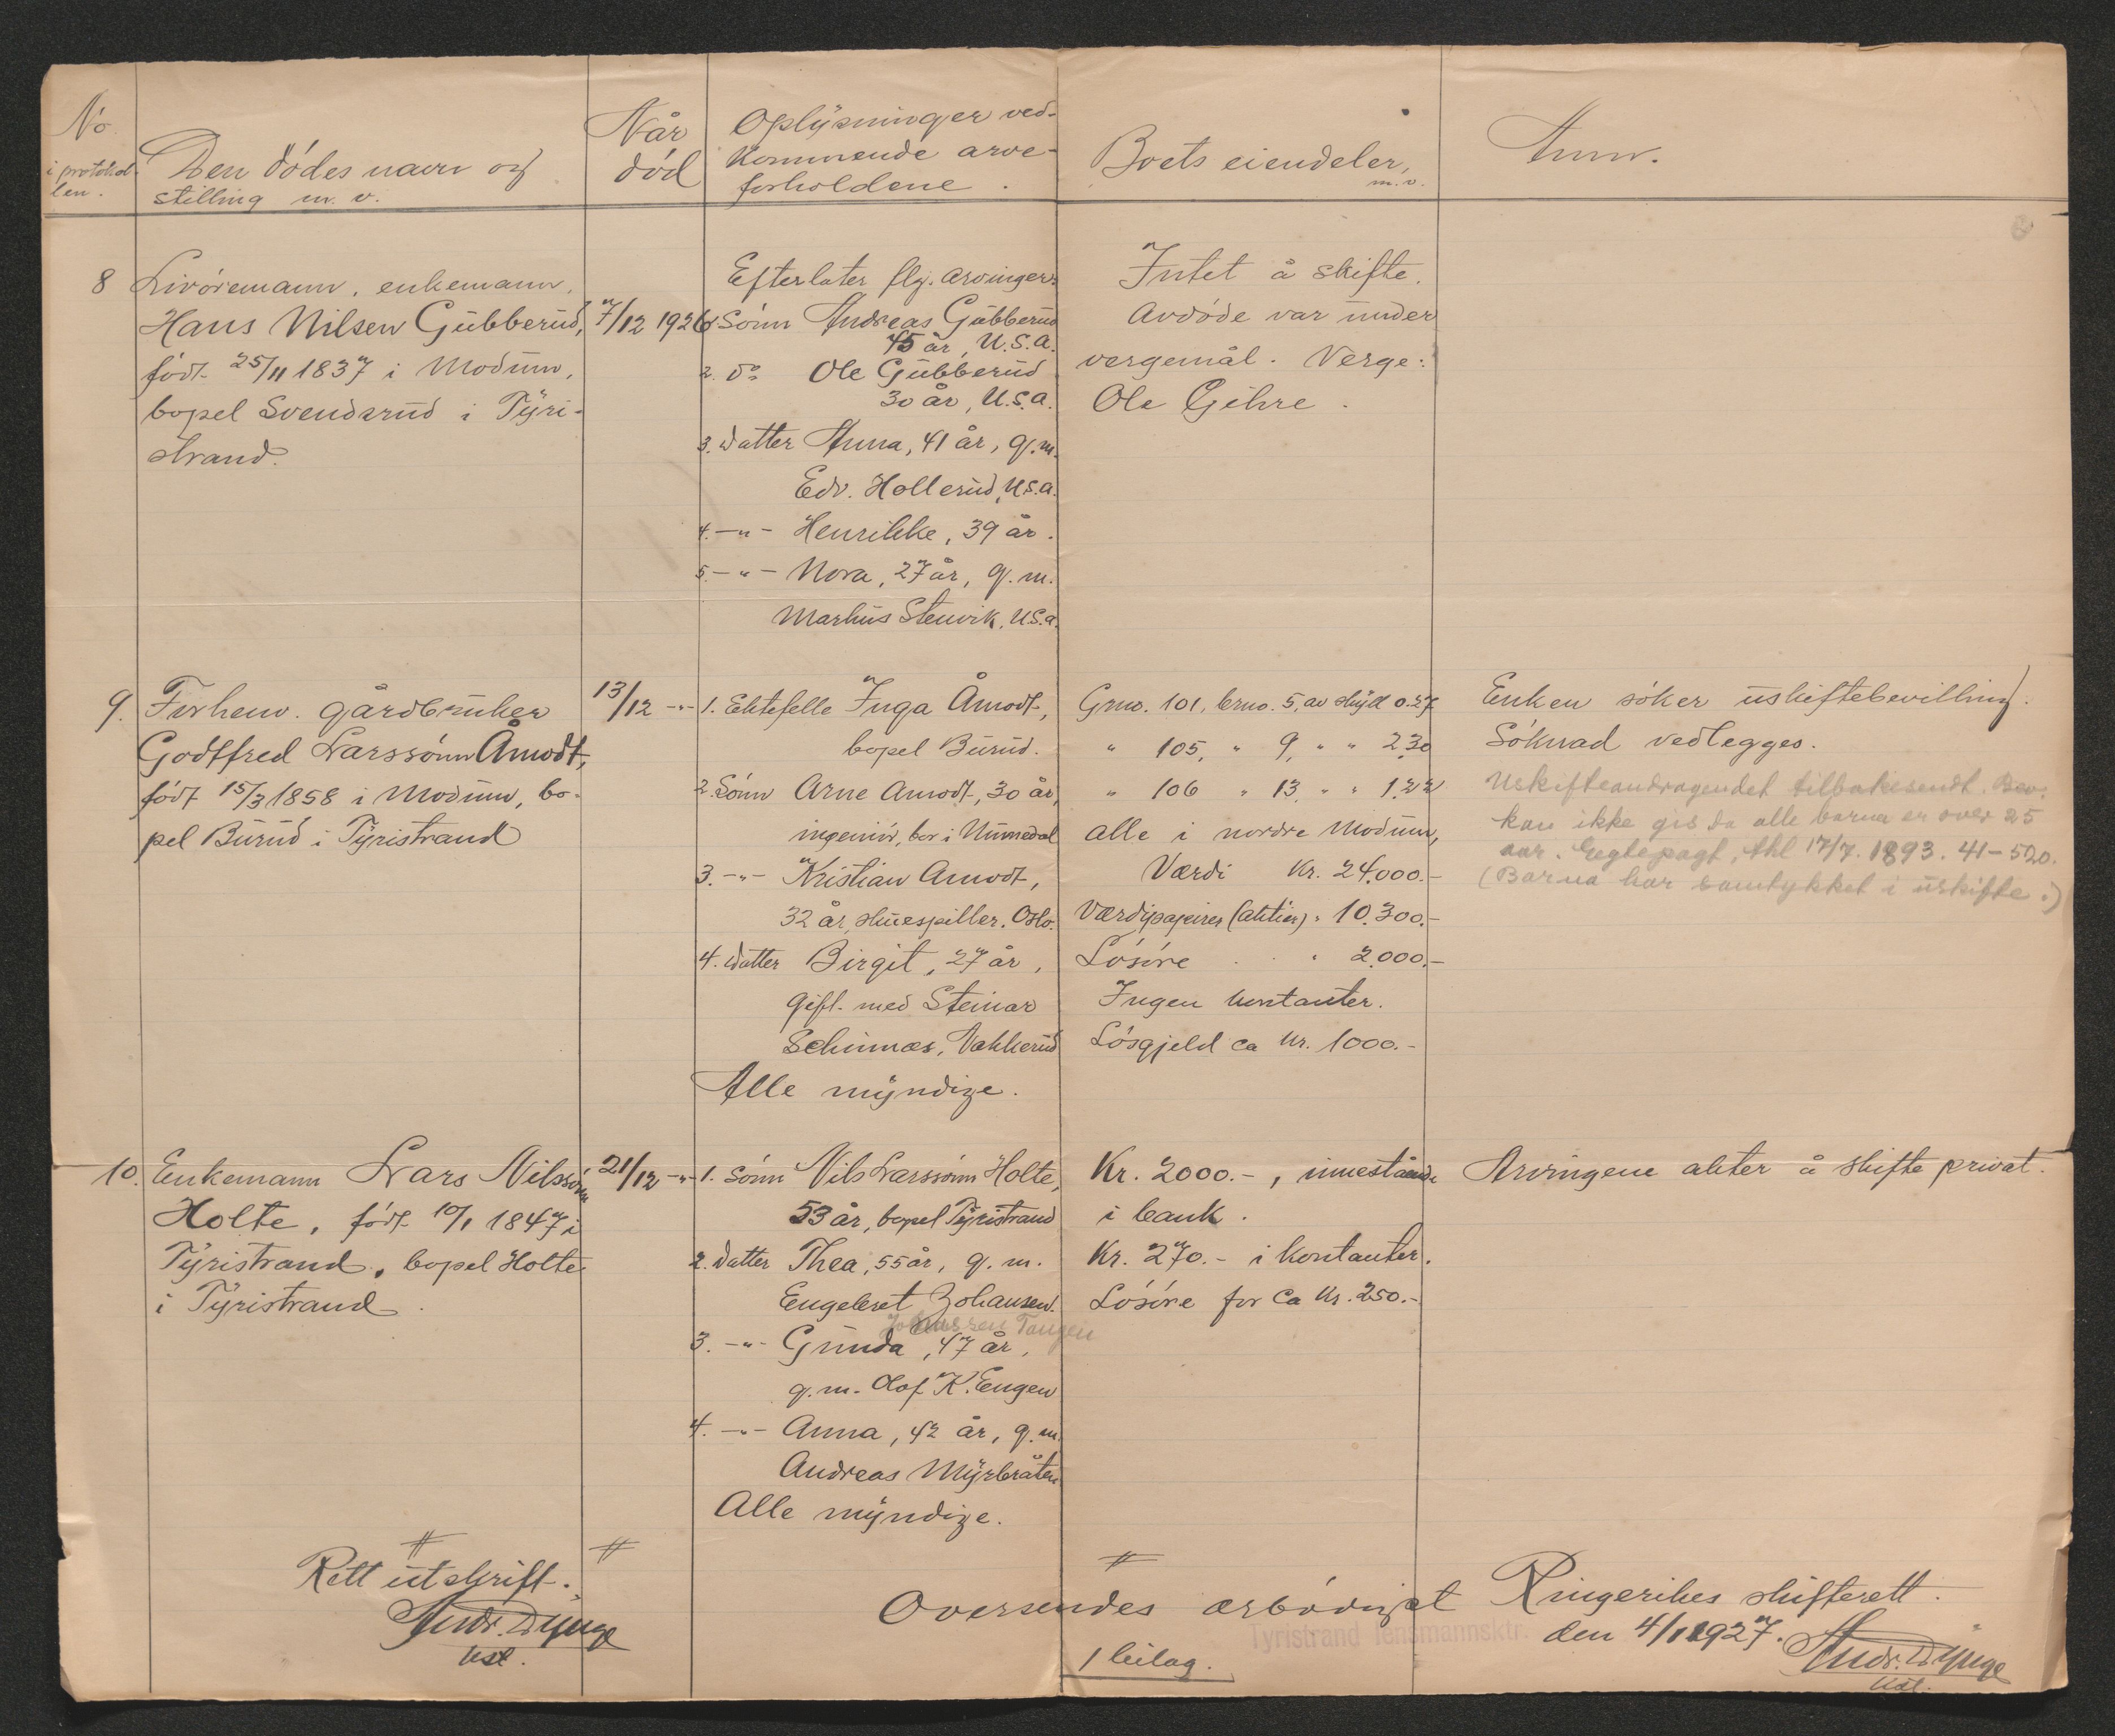 No
i protokol-
len.
Den dödes navn og
stilling m. v.
Når
död
Oplysninger ved-
kommende arve-
forholdene.
Boets eiendeler,
m. v.
Anm.
8
Livöremann, enkemann,
Hans Nilsen Gubberud,
født 25/11 1837 i Modum,
bopel Svendsrud i Tyri-
strand.
7/12 1926
Efterlater flg. arvinger:
1. Sönn Andreas Gubberud
45 år, U.S.A.
2. do Ole Gubberud
30 år, U.S.A.
3. Datter Anna, 41 år, g.m.
Edv. Hollerud, U.S.A.
4. -"- Henrikke, 39 år.
5. -"- Nora, 27 år, g.m.
Markus Stenvik, U.S.A.
Intet å skifte.
Avdöde var under
vergemål. Verge:
Ole Gihre.
9.
Forhenv. gårdbruker
Godtfred Larssönn Åmodt,
födt 15/3 1858 i Modum, bo-
pel Burud i Tyristrand
13/12 -"-
1. Ektefelle Inga Åmodt,
bopel Burud.
2. Sönn Arne Amodt, 30 år,
ingeniör, bor i Numedal
3. -"- Kristian Amodt,
32 år, skuespiller. Oslo.
4. Datter Birgit, 27 år,
gift med Steinar
Schinnæs, Vakkerud
Alle myndige.
Grno. 101, brno. 5, av skyld 0.27
" 105, " 9, " " 2.30
" 106 " 13, " " 1.22
alle i nordre Modum,
Værdi kr. 24.000.-
Værdipapirer (aktier) " 10.300.-
Lösöre " 2.000.-
Ingen kontanter.
Lösgjeld ca kr. 1000.-
Enken söker uskiftebevilling.
Söknad vedlegges.
Uskifteandragendet tilbakesendt. Bev.
kan ikke gis da alle barna er over 25
aar. Egtepagt, thl 17/7. 1893. 41-520.
(Barna har samtykket i uskifte.)
10.
Enkemann Lars Nilssönn
Holte, födt 10/1 1847 i
Tyristrand, bopel Holte
i Tyristrand.
21/12 -"-
1. Sönn Nils Larssönn Holte,
53 år, bopel Tyristrand
2. Datter Thea, 55 år, g.m.
Engebret Johansen.
Johansen Tangen
3. -"- Gunda, 47 år,
g.m. Olaf K. Engen
4. -"- Anna, 42 år, g.m.
Andreas Myrbråten
Alle myndige.
Kr. 2000.-, innestående
i bank.
Kr. 270.- i kontanter.
Lösöre for ca kr. 250.-
Arvingene akter å skifte privat.
Rett utskrift.
Andr. Dynge
kst.
Oversendes ærbödigst Ringerikes skifterett.
Tyristrand lensmannsktr. den 4/1 1927.
1 bilag.
Andr. Dynge
kst.